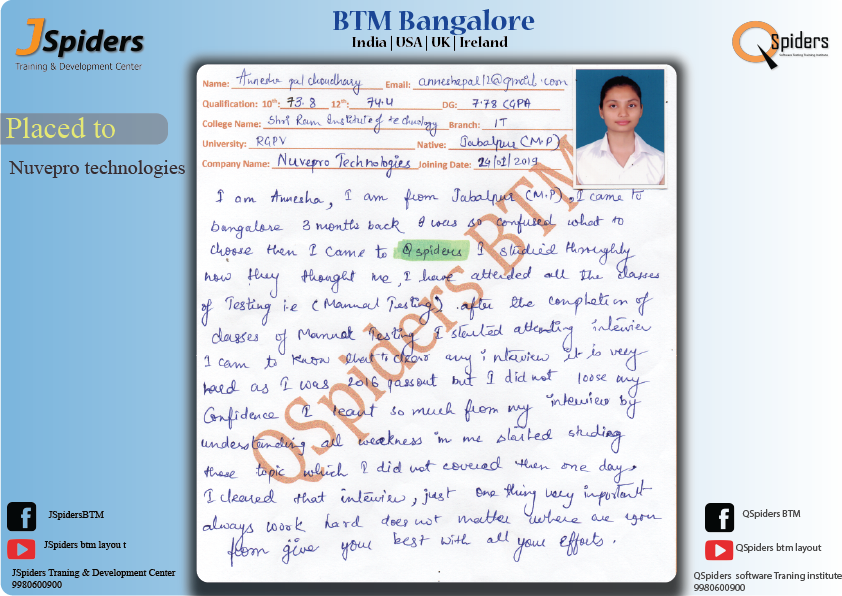 JSpiders
Training & Development Center
BTM Bangalore
India | USA | UK | Ireland
QSpiders
Software Testing Training Institute
Placed to
Nuvepro technologies
Name: Annesha pal choudhary Email: anneshapal12@gmail.com
Qualification: 10th: 73.8 12th: 74.4 DG: 7.78 CGPA
College Name: Shri Ram Institute of technology Branch: IT
University: RGPV Native: Jabalpur (M.P)
Company Name: Nuvepro Technologies Joining Date: 24/01/2019
I am Annesha, I am from Jabalpur (M.P), I came to
bangalore 3 months back I was so confused what to
choose then I came to Qspiders I studied throughly
now they thought me, I have attended all the classes
of Testing i.e (Manual Testing). after the completion of
classes of Manual Testing I started attending interview
I cam to know that to clear any interview it is very
hard as I was 2016 passout but I did not loose my
Confidence I learnt so much from my interview by
understanding all weakness in me started studing
those topic which I did not covered then one day
I cleared that interview, just one thing very important
always work hard does not matter where are you
from give your best with all your efforts.
QSpiders BTM
JSpidersBTM
JSpiders btm layou t
JSpiders Traning & Development Center
9980600900
QSpiders BTM
QSpiders btm layout
QSpiders software Traning institute
9980600900